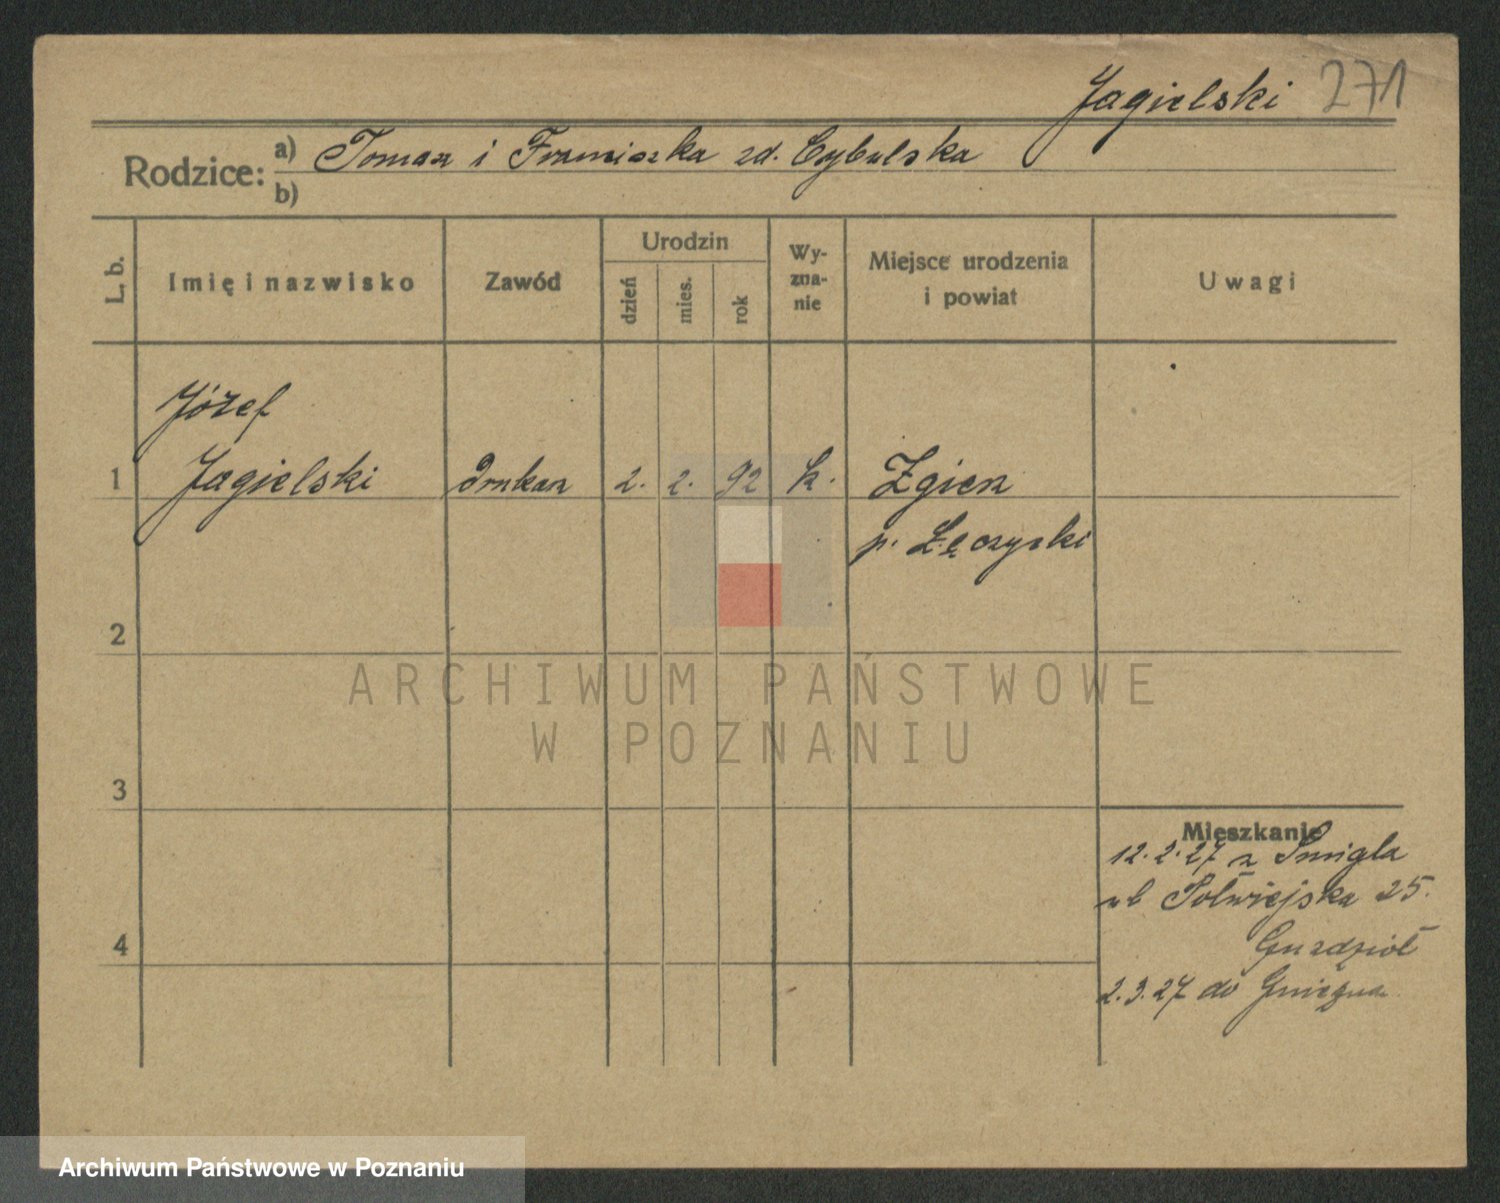 Jagielski 271
Rodzice: a) Tomasz i Franciszka zd. Cybulska
b)
L. b.
Imię i nazwisko
Zawód
Urodzin
dzień
mies.
rok
Wy-
zna-
nie
Miejsce urodzenia
i powiat
Uwagi
Józef
1 Jagielski drukarz 2. 2. 92 k. Zgierz
p. Łęczycki
2
ARCHIWUM PAŃSTWOWE
W POZNANIU
3
Mieszkanie
12.2.27 z Śmigla
ul Półwiejska 25.
4
2.3.27 do Gniezna
Archiwum Państwowe w Poznaniu